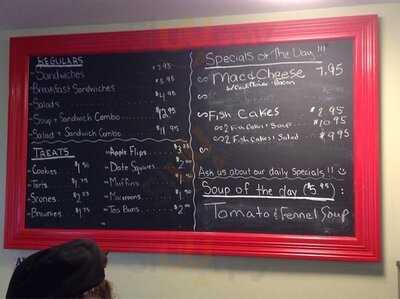 REGULARS
- Sandwiches 7.95
- Breakfast Sandwiches $5.95
- Salads $4.95
- Soup + Sandwich Combo $12.95
- Salad + Sandwich Combo $11.95
TREATS
- Cookies $1.50
- Tarts $1.75
- Scones $2.25
- Brownies $1.75
- Apple Flips
- Date Squares
- Muffins
- Macaroons
- Tea Buns $2.00
Specials of the Day!!!
Mac & Cheese 7.95
Fish Cakes $8.95
2 Fish Cakes + Soup $10.95
2 Fish Cakes + Salad $9.95
Ask us about our daily Specials!!
Soup of the day ($5.95):
Tomato & Fennel Soup